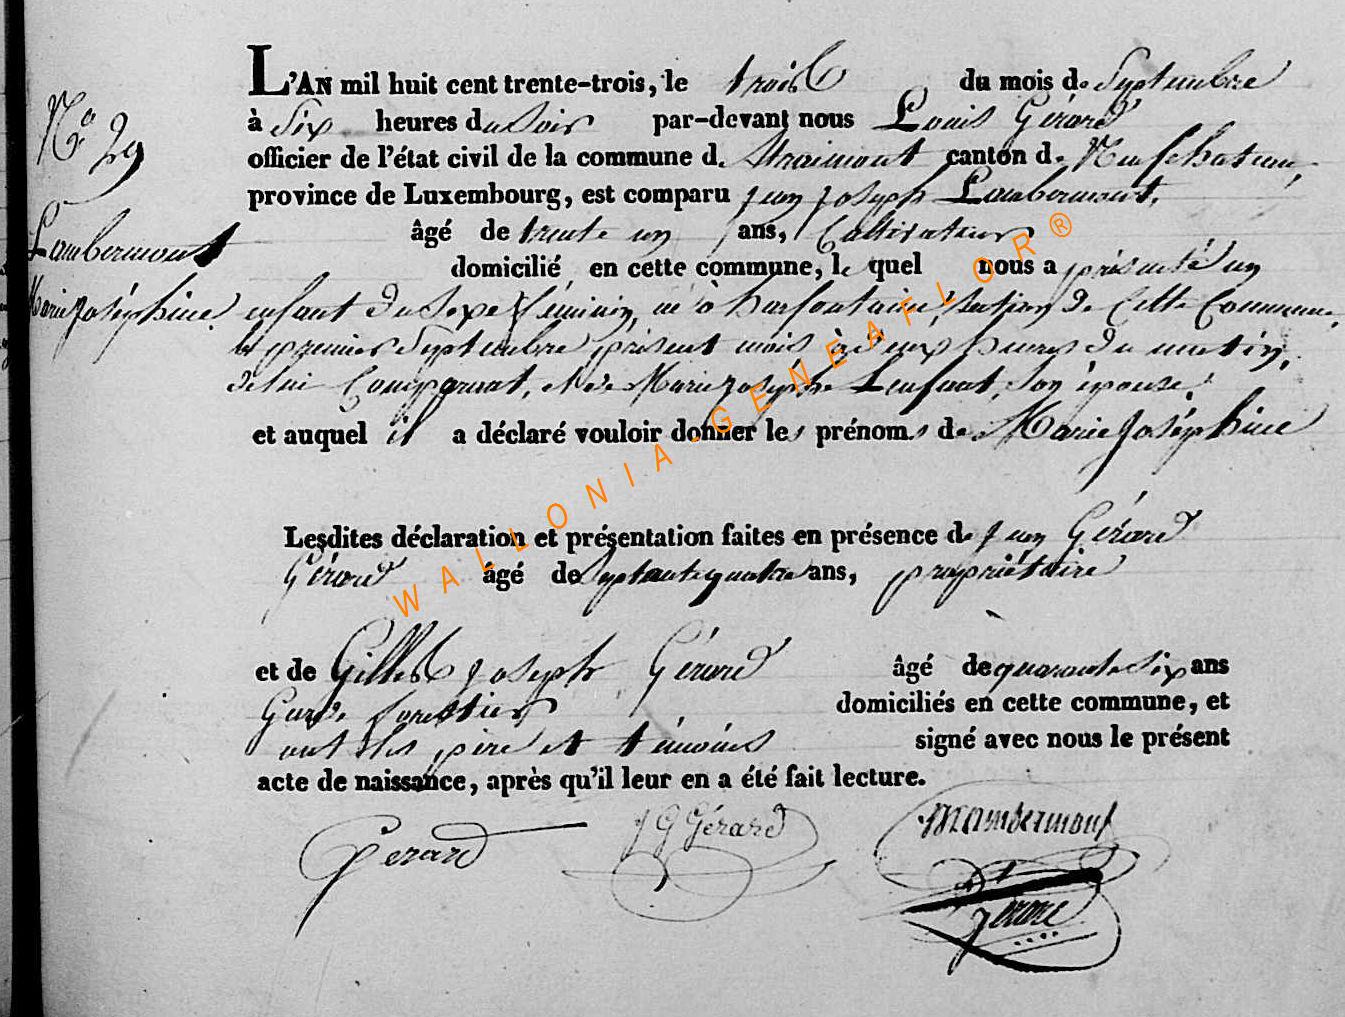 N.o 29
Lambermont
Marie Joséphine.
L'AN mil huit cent trente-trois, le trois du mois de Septembre
à Six heures du Soir par-devant nous Louis Gérard
officier de l'état civil de la commune de Straimont canton de Neufchateau,
province de Luxembourg, est comparu Jean Joseph Lambermont,
âgé de trente un ans, Cultivateur
domicilié en cette commune, le quel nous a présenté un
enfant du Sexe féminin, né à harfontaine, Section de Cette Commune,
le premier Septembre présent mois à deux heures du matin,
de lui Comparant, et de Marie Josephe Lenfant, son épouse,
et auquel il a déclaré vouloir donner les prénoms de Marie Joséphine
Lesdites déclaration et présentation faites en présence de Jean Gérard
Gérard âgé de Septante quatre ans, propriétaire
et de Gilles Joseph Gérard âgé de quarante Six ans
Garde forestier domiciliés en cette commune, et
ont les père et témoins signé avec nous le présent
acte de naissance, après qu'il leur en a été fait lecture.
Gerard
J G Gérard
Lambermont
Gerard
WALLONIA-GENEAFLOR®